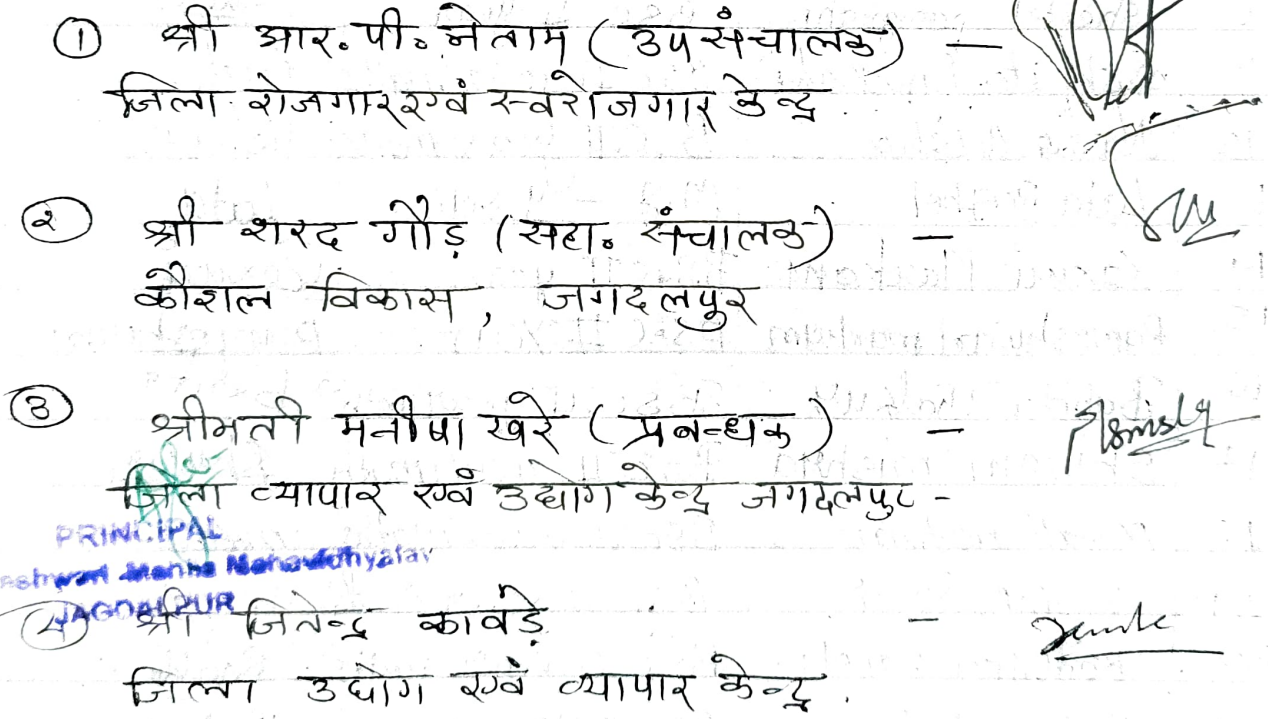 ① श्री आर. पी. नेताम (उपसंचालक) —
जिला रोजगार एवं स्वरोजगार केन्द्र.
② श्री शरद गौड़ (सहा. संचालक) —
कौशल विकास, जगदलपुर
③ श्रीमती मनीषा खरे (प्रबन्धक) —
जिला व्यापार एवं उद्योग केन्द्र जगदलपुर -
PRINCIPAL
JAGDALPUR
④ श्री जितेन्द्र कावड़े -
जिला उद्योग एवं व्यापार केन्द्र.